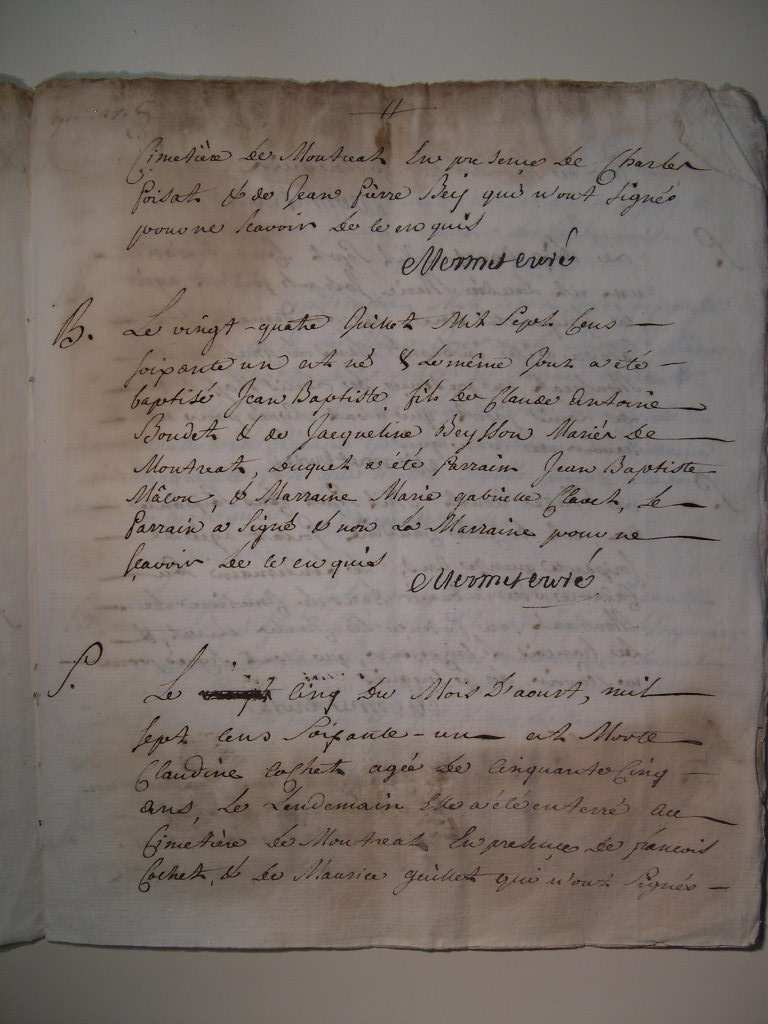 11
Cimetière de Montreal En presence de Charles
Poisat & de Jean Pierre Bey qui n'ont Signés
pour ne Scavoir de ce enquis
Mermet curé
B. Le vingt-quatre Juillet Mil Sept Cens
soixante un est né & Le même Jour a été
baptisé Jean Baptiste fils de Claude Antoine
Boudet & de Jacqueline Beysson Mariés de
Montreal, duquel a été Parrain Jean Baptiste
Mâcon, & Marraine Marie gabrielle, Le
Parrain a Signé & non La Marraine pour ne
sçavoir de ce enquis
Mermet curé
S. Le cinq du Mois D'aoust, mil
sept cens Soixante-un est Morte
Claudine Cochet agée de Cinquante Cinq
ans, Le Lendemain Elle a été enterré au
Cimétière de Montreal En presençe de françois
Cochet, & de Maurice guillet qui n'ont Signés